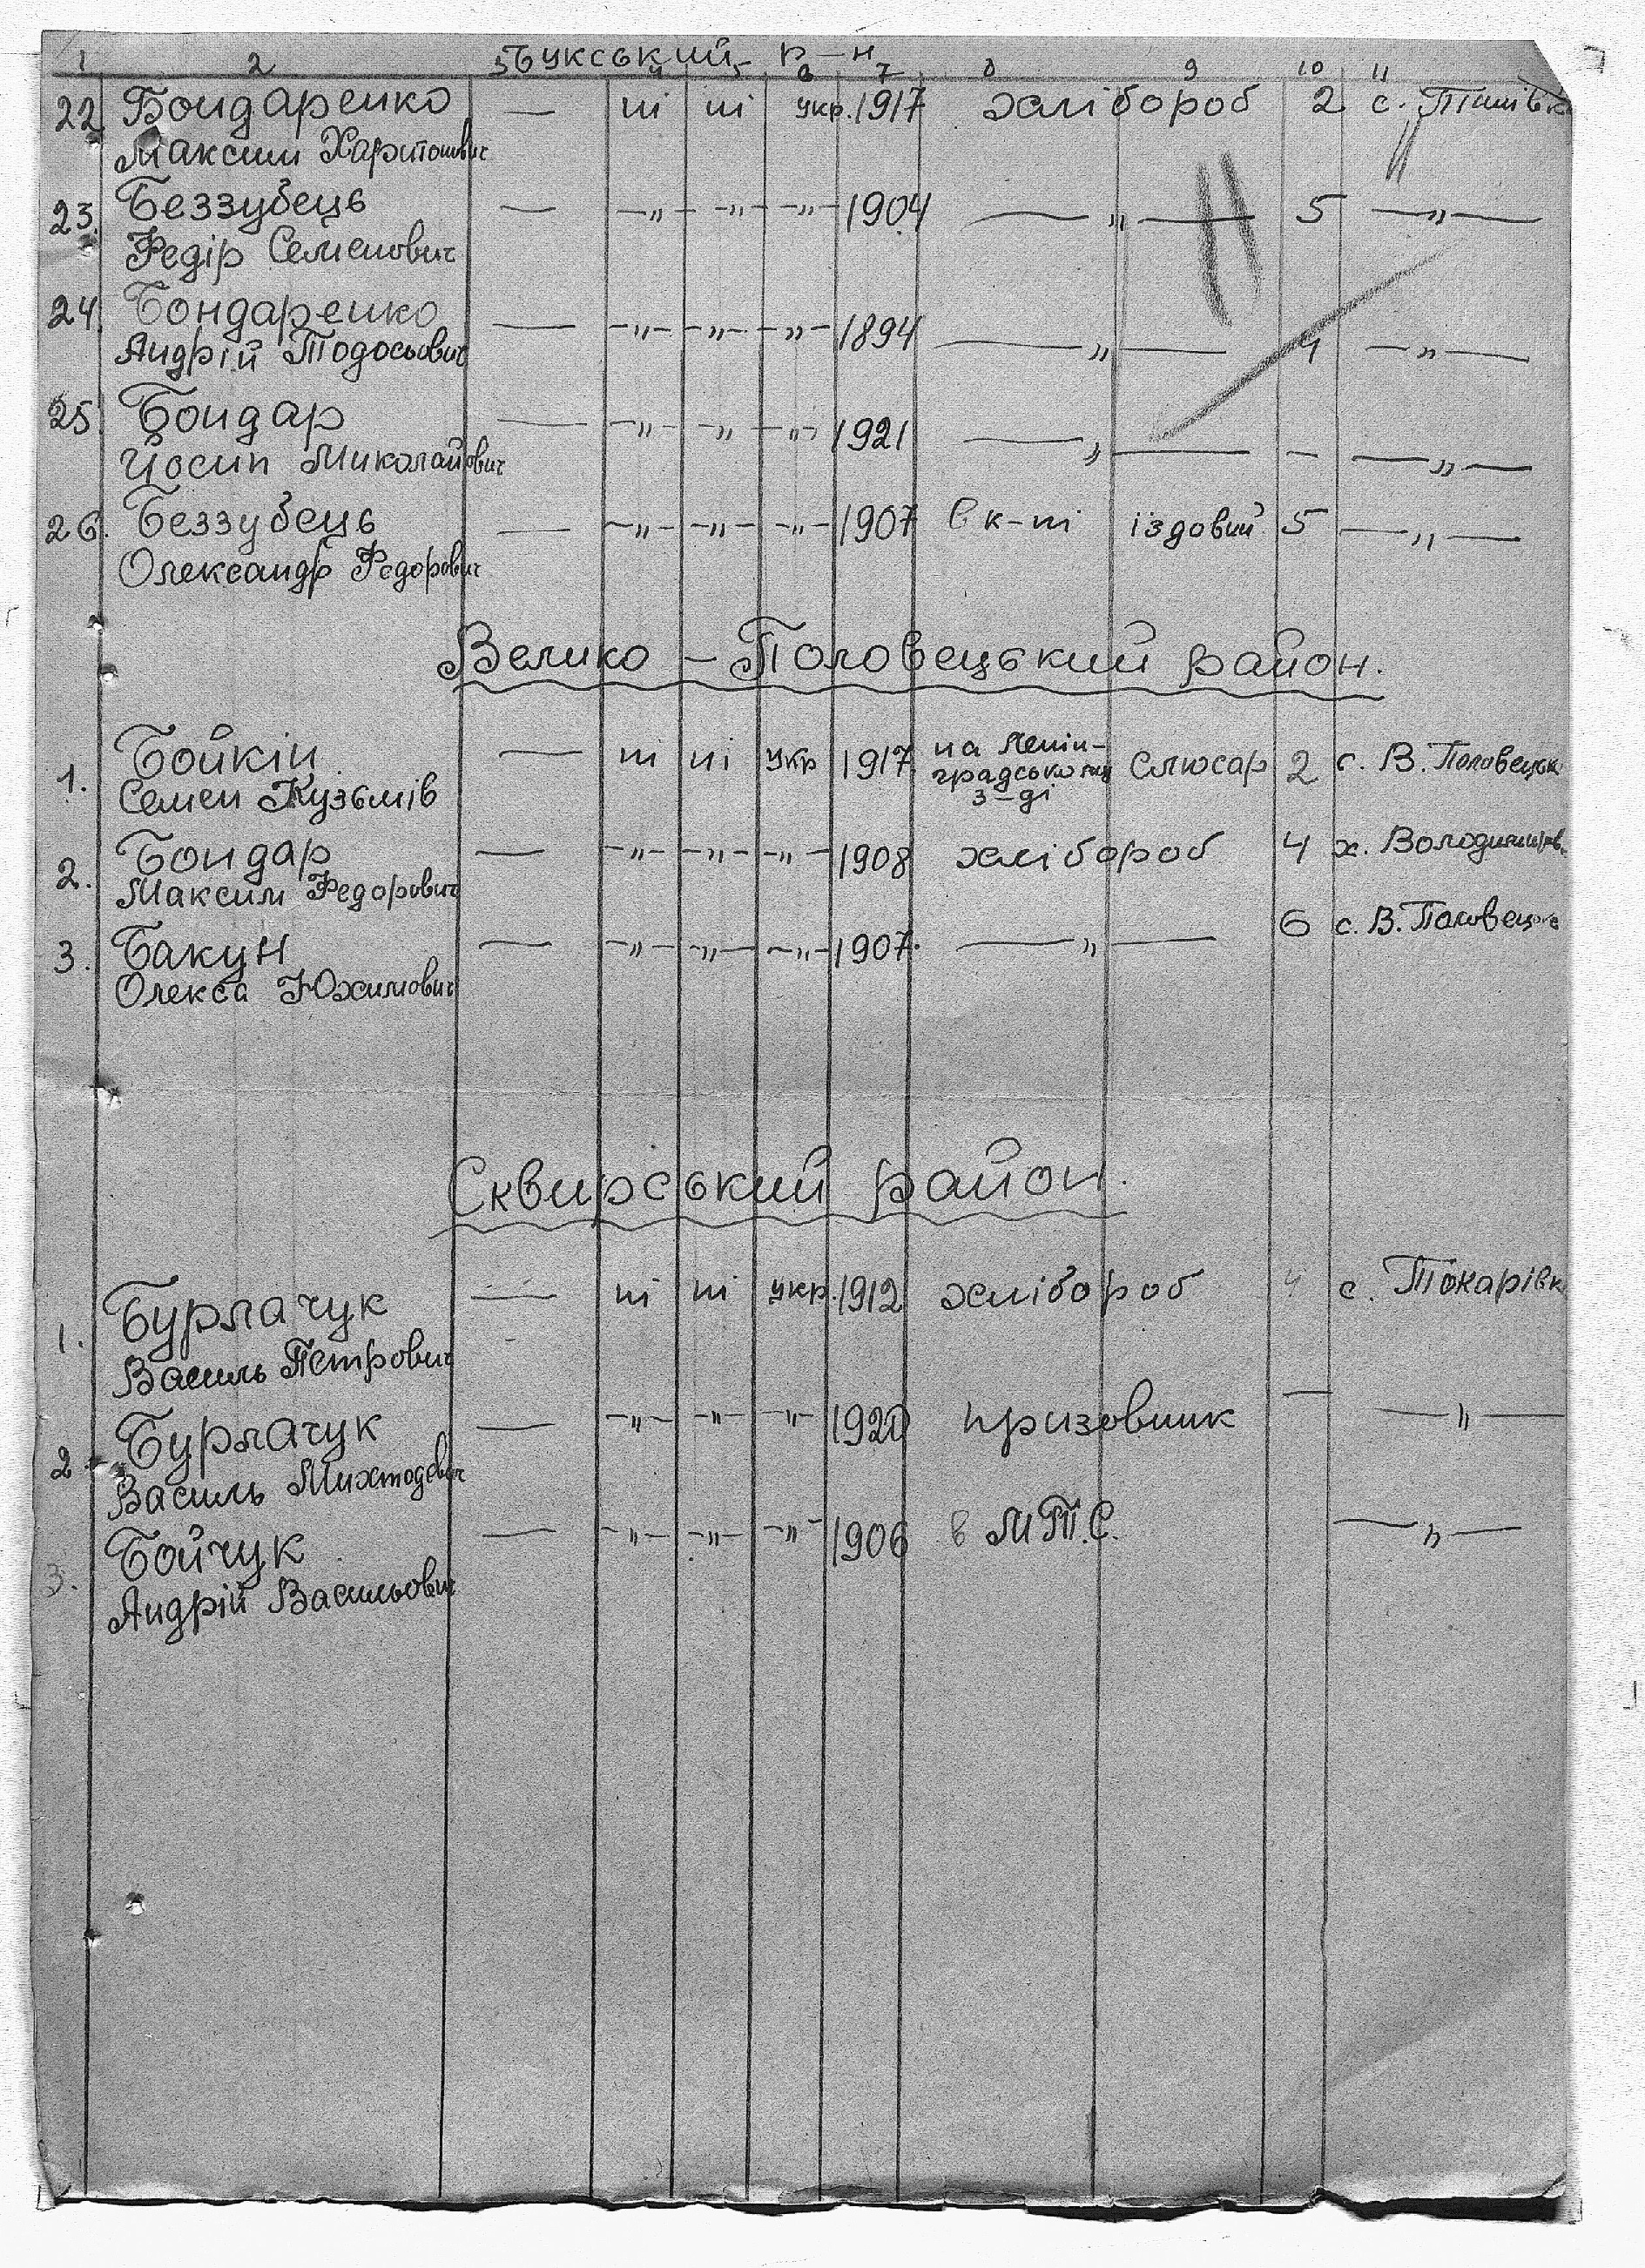 Букський р-н
1 2 3 4 5 6 7 8 9 10 11
22. Бондаренко — ні ні укр. 1917 хлібороб 2 с.
Максим Харитонович
23. Беззубець — —"— —"— —"— 1904 —"— 5 —"—
Федір Семенович
24. Бондаренко — —"— —"— —"— 1894 —"— 1 —"—
Андрій Тодосьович
25. Бондар — —"— —"— —"— 1921 —"— — —"—
Йосип Миколайович
26. Беззубець — —"— —"— —"— 1907 в к-пі їздовий 5 —"—
Олександр Федорович
Велико - Половецький район.
1. Бойкін — ні ні укр 1917 на Ленін-
градському слюсар 2 с. В. Половецьк
з-ді
Семен Кузьмів
2. Бондар — —"— —"— —"— 1908 хлібороб 4 х. Володимирів.
Максим Федорович
3. Бакун — —"— —"— —"— 1907. —"— 6 с. В. Половецьке
Олекса Юхимович
Сквирський район.
1. Бурлачук — ні ні укр. 1912 хлібороб 4 с. Токарівк
Василь Петрович
2. Бурлачук — —"— —"— —"— 1920 призовник — —"—
Василь Михтодович
3. Бойчук — —"— —"— —"— 1906 в М.Т.С. —"—
Андрій Васильович